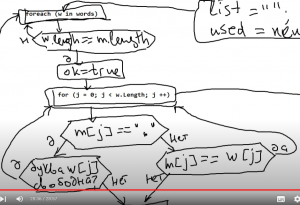 foreach (w in words)
list = "".
used =
н
w.length == m.length
д
ok=true
for (j = 0; j < w.Length; j ++)
m[j] == "."
д
нет
да
буква w[j]
свободна?
m[j] == w[j]
д
нет
нет